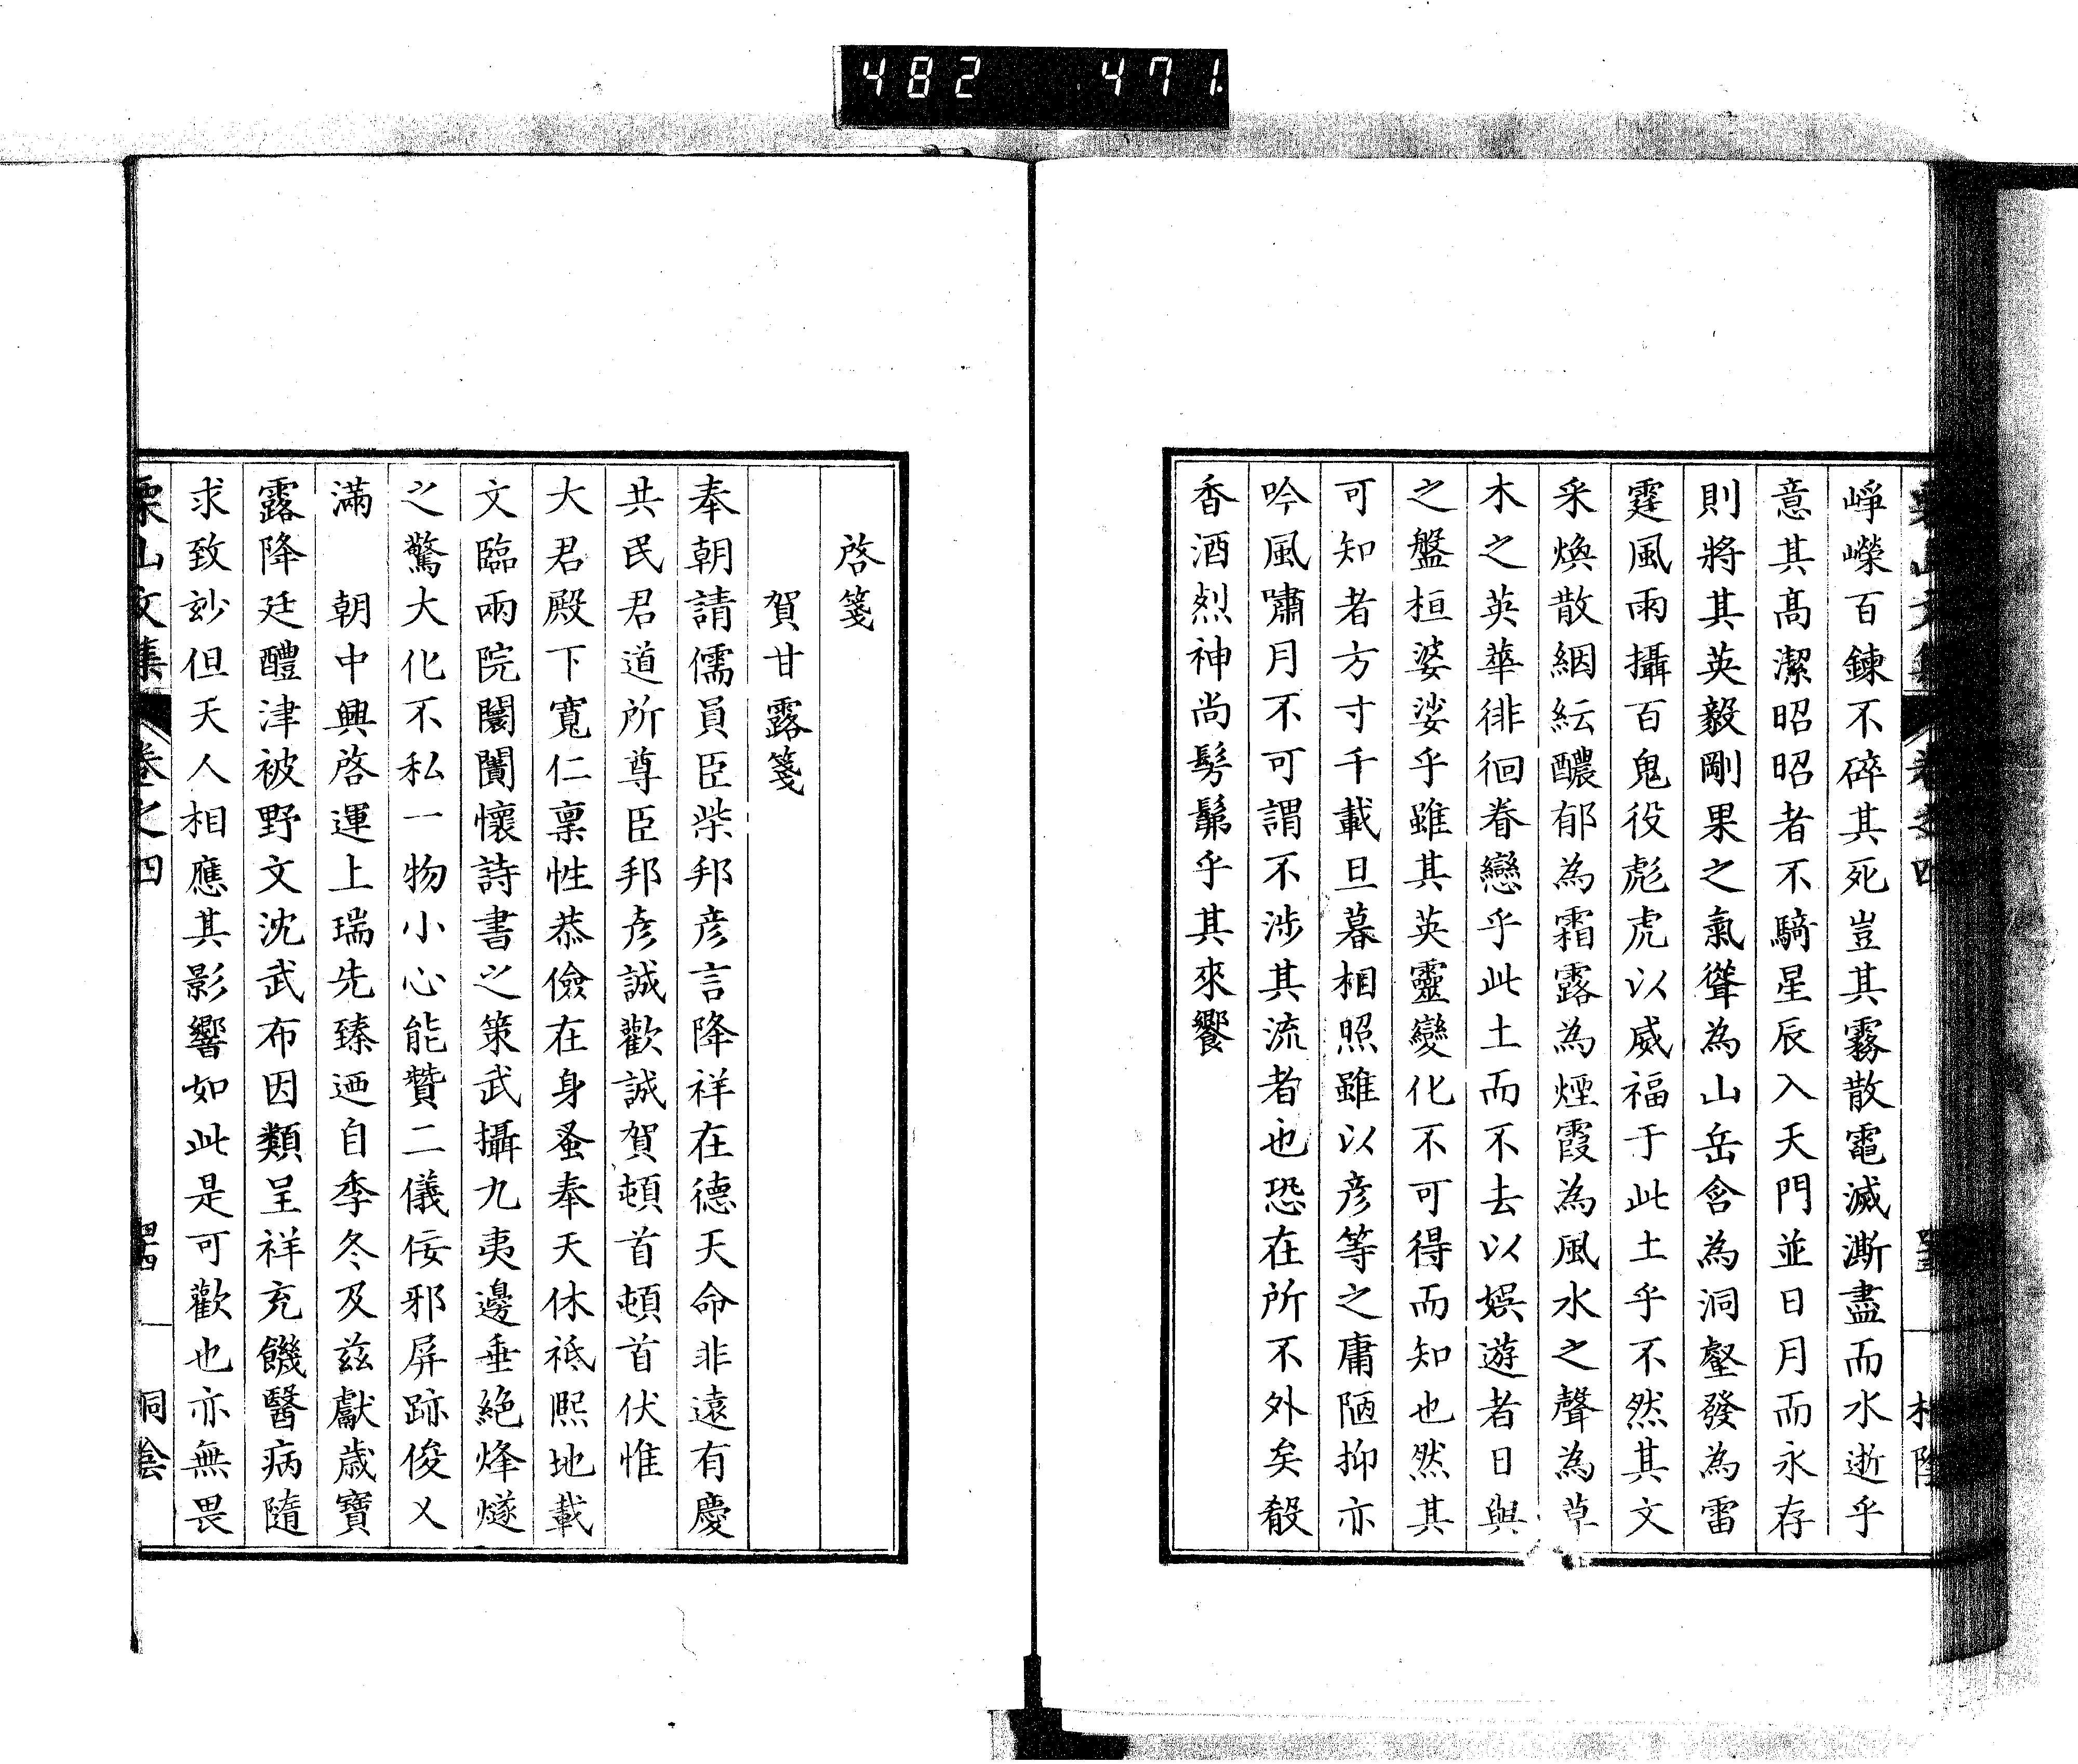 482 471.
崢嶸百鍊不碎其死豈其霧散電滅澌盡而水逝乎
意其高潔昭昭者不騎星辰入天門並日月而永存
則將其英毅剛果之氣聳為山岳舍為洞壑發為雷
霆風雨攝百鬼役彪虎以威福于此土乎不然其文
采煥散絪紜醲郁為霜露為煙霞為風水之聲為草
木之英華徘徊眷戀乎此土而不去以娯遊者日與
之盤桓婆娑乎雖其英靈變化不可得而知也然其
可知者方寸千載旦暮相照雖以彥等之庸陋抑亦
吟風嘯月不可謂不涉其流者也恐在所不外矣殽
香酒烈神尚髣髴乎其來饗
啓箋
賀甘露箋
奉朝請儒員臣柴邦彥言降祥在德天命非遠有慶
共民君道所尊臣邦彥誠歡誠賀頓首頓首伏惟
大君殿下寬仁稟性恭儉在身蚤奉天休祗熙地載
文臨兩院闤闠懷詩書之策武攝九夷邊垂絕烽燧
之驚大化不私一物小心能贊二儀佞邪屏跡俊乂
滿 朝中興啓運上瑞先臻迺自季冬及茲獻歲寶
露降廷醴津被野文沈武布因類呈祥充饑醫病隨
求致玅但天人相應其影響如此是可歡也亦無畏
栗山文集 卷之四